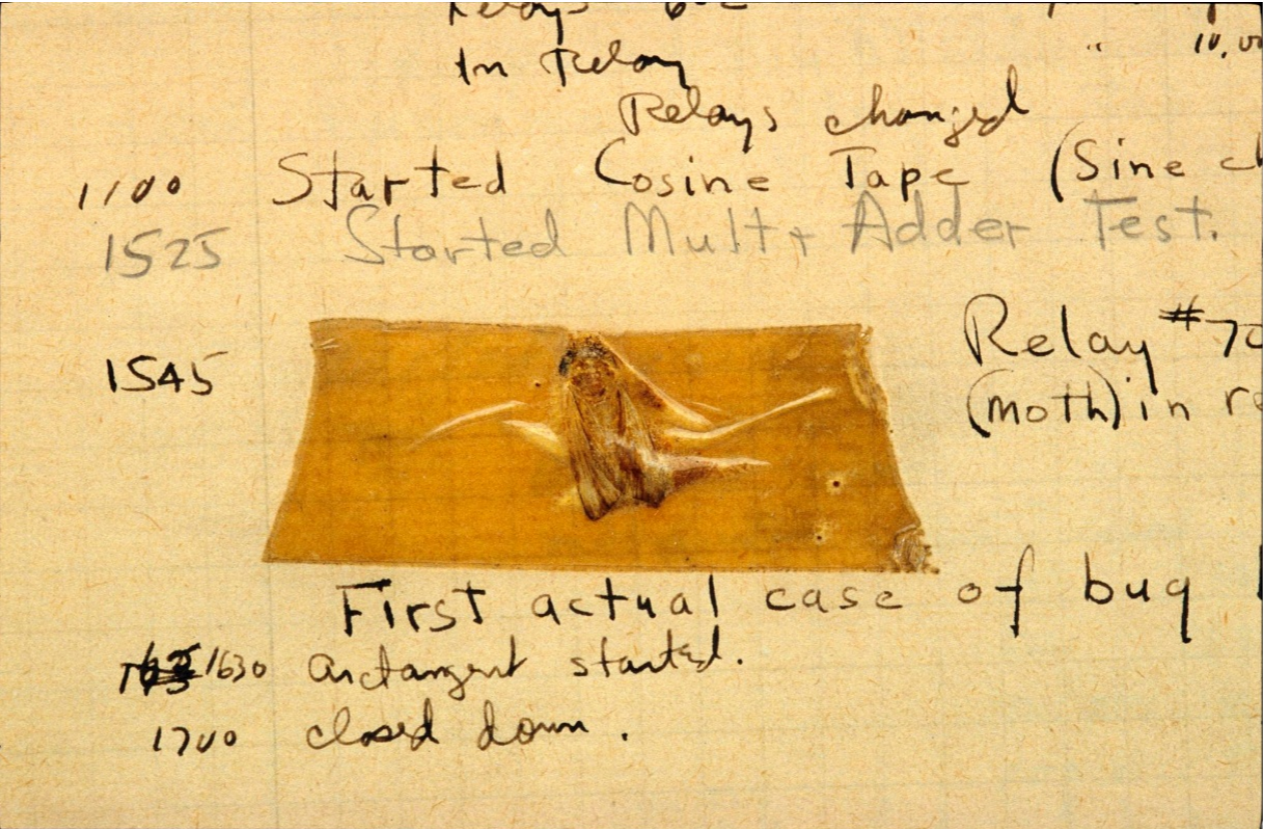 Relays
in relay
Relays changed
1100 Started Cosine Tape (Sine ch
1525 Started Mult + Adder Test.
1545 Relay #70
(moth) in re
First actual case of bug b
1630 arctangent started.
1700 closed down.